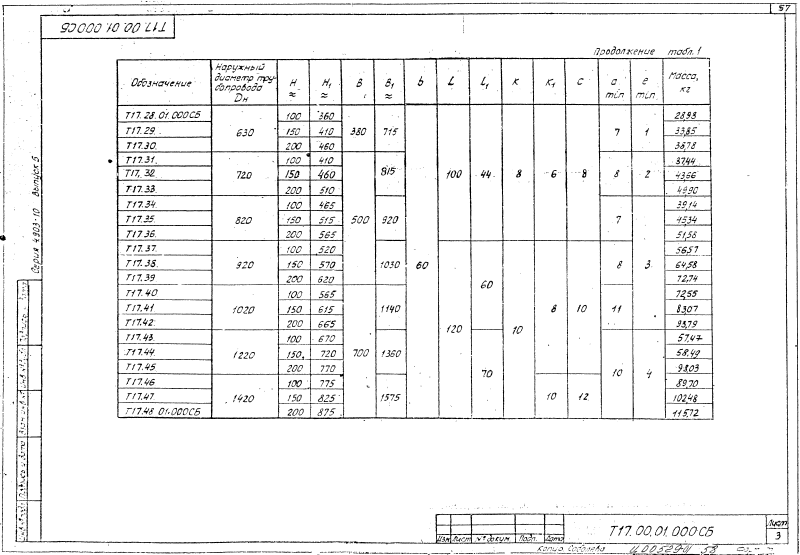 57
Т17.00.01.000СБ
Продолжение табл. 1
Обозначение | Наружный диаметр трубопровода Dн | H ≈ | H₁ ≈ | B | B₁ ≈ | b | L | L₁ | K | K₁ | C | a min | e min | Масса, кг
Т17.28.01.000СБ | 630 | 100 | 360 | 380 | 715 | 60 | 100 | 44 | 8 | 6 | 8 | 7 | 1 | 28,93
Т17.29. | 150 | 410 | 33,85
Т17.30. | 200 | 460 | 38,78
Т17.31. | 720 | 100 | 410 | 500 | 815 | 8 | 2 | 37,44
Т17.32 | 150 | 460 | 43,66
Т17.33. | 200 | 510 | 49,90
Т17.34. | 820 | 100 | 465 | 920 | 7 | 3 | 39,14
Т17.35. | 150 | 515 | 45,34
Т17.36. | 200 | 565 | 51,58
Т17.37. | 920 | 100 | 520 | 1030 | 120 | 60 | 10 | 8 | 10 | 8 | 56,57
Т17.38. | 150 | 570 | 64,58
Т17.39 | 200 | 620 | 72,74
Т17.40 | 1020 | 100 | 565 | 700 | 1140 | 11 | 72,55
Т17.41. | 150 | 615 | 83,07
Т17.42. | 200 | 665 | 93,79
Т17.43. | 1220 | 100 | 670 | 1360 | 70 | 10 | 4 | 57,47
Т17.44. | 150 | 720 | 58,49
Т17.45 | 200 | 770 | 98,03
Т17.46 | 1420 | 100 | 775 | 1575 | 10 | 12 | 89,70
Т17.47. | 150 | 825 | 102,48
Т17.48.01.000СБ | 200 | 875 | 115,72
Серия 4.903-10 Выпуск 5
Изм Лист № докум. Подп. Дата
Т17.00.01.000СБ
Лист
3
Копир. Соболева
58